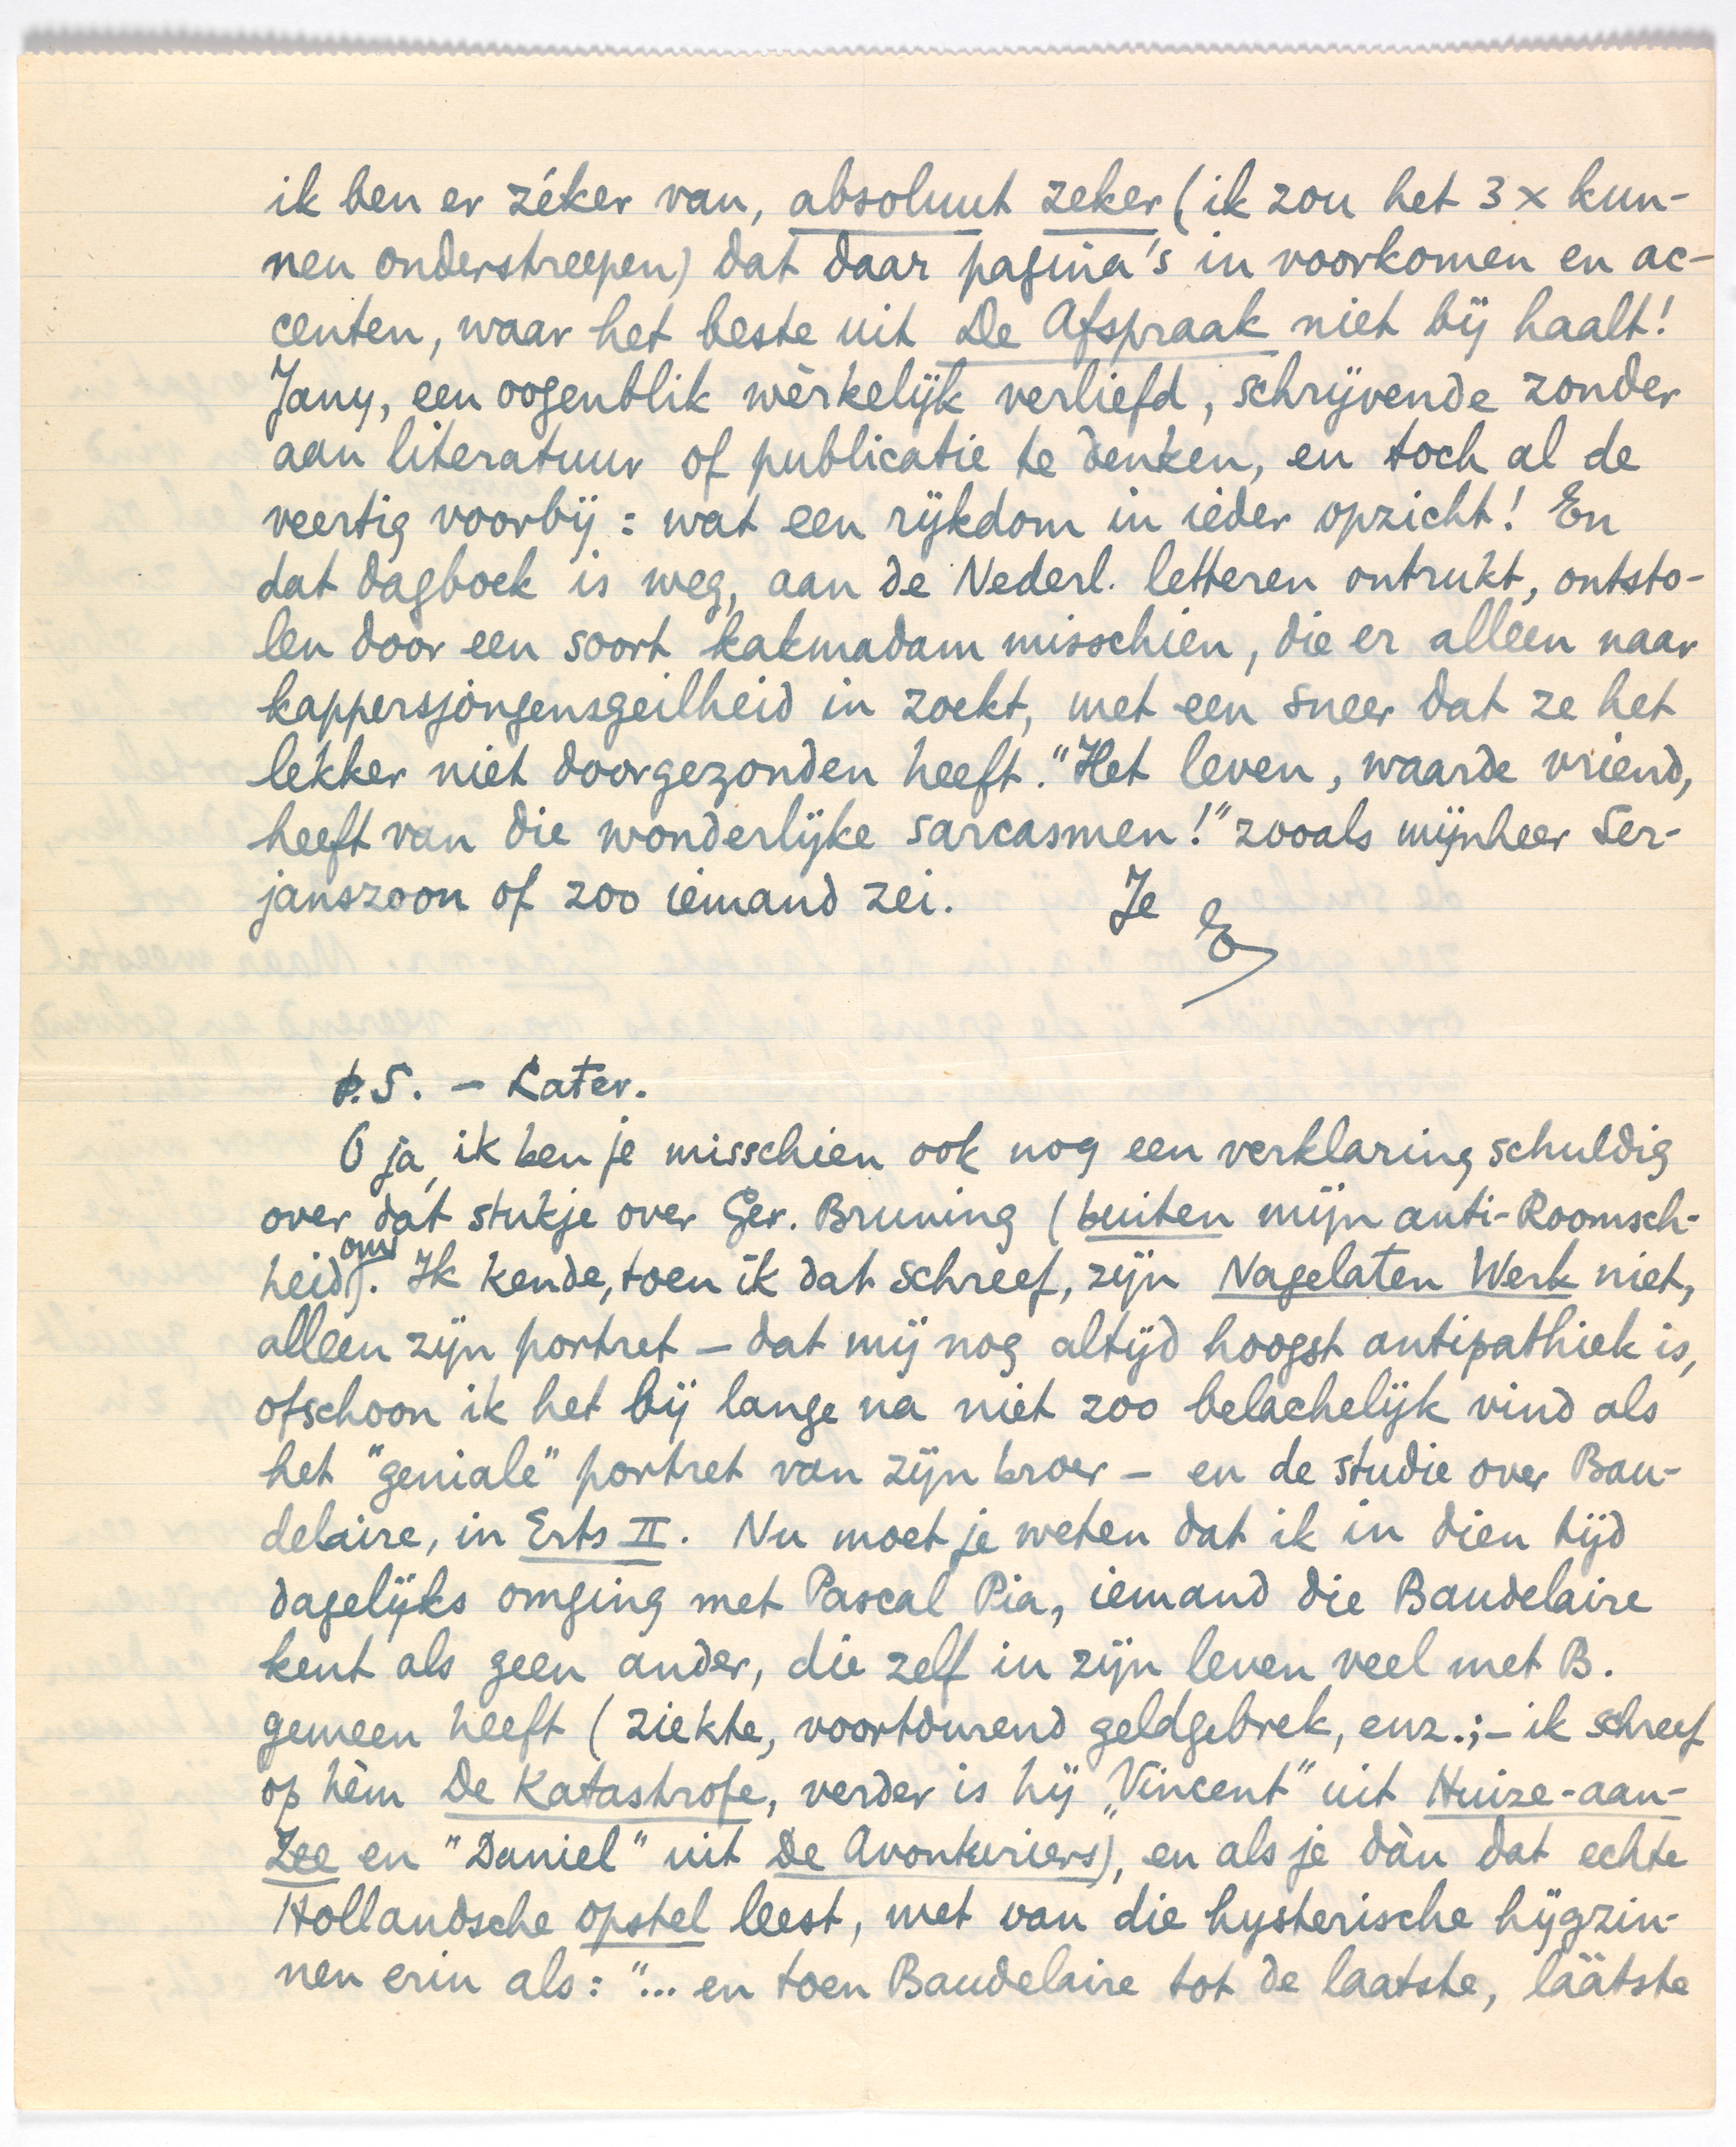 ik ben er zéker van, absoluut zeker (ik zou het 3 x kun-
nen onderstreepen) dat daar pagina's in voorkomen en ac-
centen, waar het beste uit De Afspraak niet bij haalt!
Jany, een oogenblik wèrkelijk verliefd, schrijvende zonder
aan literatuur of publicatie te denken, en toch al de
veertig voorbij: wat een rijkdom in ieder opzicht! En
dat dagboek is weg, aan de Nederl. letteren ontrukt, ontsto-
len door een soort kakmadam misschien, die er alleen naar
kappersjongensgeilheid in zoekt, met een sneer dat ze het
lekker niet doorgezonden heeft. "Het leven, waarde vriend,
heeft van die wonderlijke sarcasmen!" zooals mijnheer Ser-
janszoon of zoo iemand zei. Je
E
P.S. — Later.
O ja, ik ben je misschien ook nog een verklaring schuldig
over dat stukje over Ger. Bruning (buiten mijn anti-Roomsch-
heid om). Ik kende, toen ik dat schreef, zijn Nagelaten Werk niet,
alleen zijn portret — dat mij nog altijd hoogst antipathiek is,
ofschoon ik het bij lange na niet zoo belachelijk vind als
het "geniale" portret van zijn broer — en de studie over Bau-
delaire, in Erts II. Nu moet je weten dat ik in dien tijd
dagelijks omging met Pascal Pia, iemand die Baudelaire
kent als geen ander, die zelf in zijn leven veel met B.
gemeen heeft (ziekte, voortdurend geldgebrek, enz.; — ik schreef
op hèm De Katastrofe, verder is hij "Vincent" uit Huize-aan-
Zee en "Daniel" uit De Avonturiers), en als je dàn dat echte
Hollandsche opstel leest, met van die hysterische hijgzin-
nen erin als: "... en toen Baudelaire tot de laatste, läätste